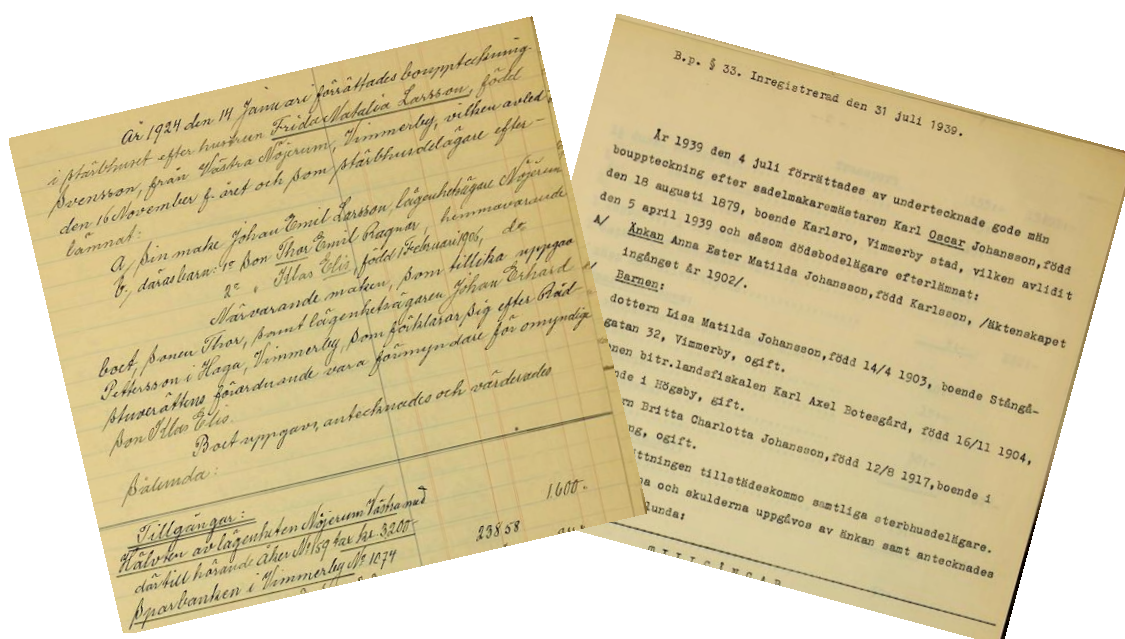 År 1924 den 14 Januari förrättades bouppteckning
i stärbhuset efter hustrun Frida Natalia Larsson, född
Svensson, från Västra Nöjerum, Vimmerby, vilken avled
den 16 November f. året och som stärbhusdelägare efter-
lämnat:
A, sin make Johan Emil Larsson, lägenhetsägare Nöjerum
b, däras barn: 1º Son Thor Emil Ragnar, hemmavarande
2º " Klas Elis, född 1 Februari 1906, do
Närvarande maken, som tillika uppgav
boet, sonen Thor, samt lägenhetsägaren Johan Erhard
Pettersson i Haga, Vimmerby, som förklarar sig efter Råd-
stuverättens förordnande vara förmyndare för omyndige
son Klas Elis.
Boet uppgavs, antecknades och värderades
sålunda:
Tillgångar:
Hälvten av lägenheten Nöjerum Västra med
där till hörande åker Nº 159 tax kr. 3200- 1600-
Sparbanken i Vimmerby Nº 1074 238 58
B.p. § 33. Inregistrerad den 31 juli 1939.
År 1939 den 4 juli förrättades av undertecknade gode män
bouppteckning efter sadelmakaremästaren Karl Oscar Johansson,född
den 18 augusti 1879, boende Karlsro, Vimmerby stad, vilken avlidit
den 5 april 1939 och såsom dödsbodelägare efterlämnat:
A/ Änkan Anna Ester Matilda Johansson,född Karlsson, /Äktenskapet
ingånget år 1902/.
Barnen:
dottern Lisa Matilda Johansson,född 14/4 1903, boende Stångå-
gatan 32, Vimmerby, ogift.
nen bitr.landsfiskalen Karl Axel Botesgård, född 16/11 1904,
nde i Högsby, gift.
rn Britta Charlotta Johansson,född 12/8 1917,boende i
ng, ogift.
ttningen tillstädeskommo samtliga sterbhusdelägare.
na och skulderna uppgåvos av änkan samt antecknades
lunda: